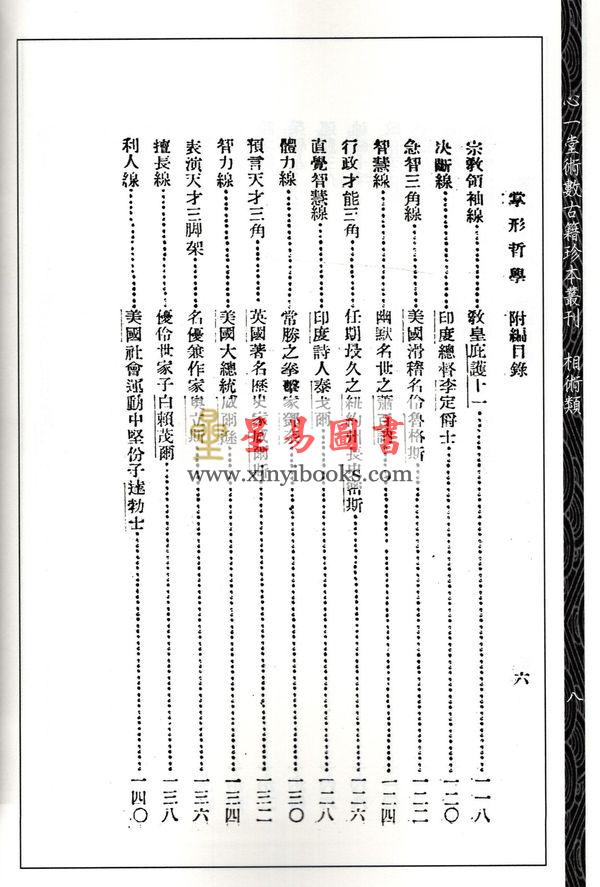 心一堂術數古籍珍本叢刊 相術類
八
掌形哲學 附編目錄
六
宗教領袖線 教皇庇護十一 一一八
決斷線 印度總督李定爵士 一二〇
急智三角線 美國滑稽名伶魯格斯 一二二
智慧線 幽默名世之蕭百訥 一二四
行政才能三角 任期最久之紐約州長史密斯 一二六
直覺智慧線 印度詩人泰戈爾 一二八
體力線 常勝之拳擊家 一三〇
預言天才三角 英國著名歷史家威爾斯 一三二
智力線 美國大總統威爾遜 一三四
表演天才三脚架 名優兼作家 斯 一三六
擅長線 優伶世家子白賴茂爾 一三八
利人線 美國社會運動中堅份子達勃士 一四〇
星易圖書
www.xinyibooks.com